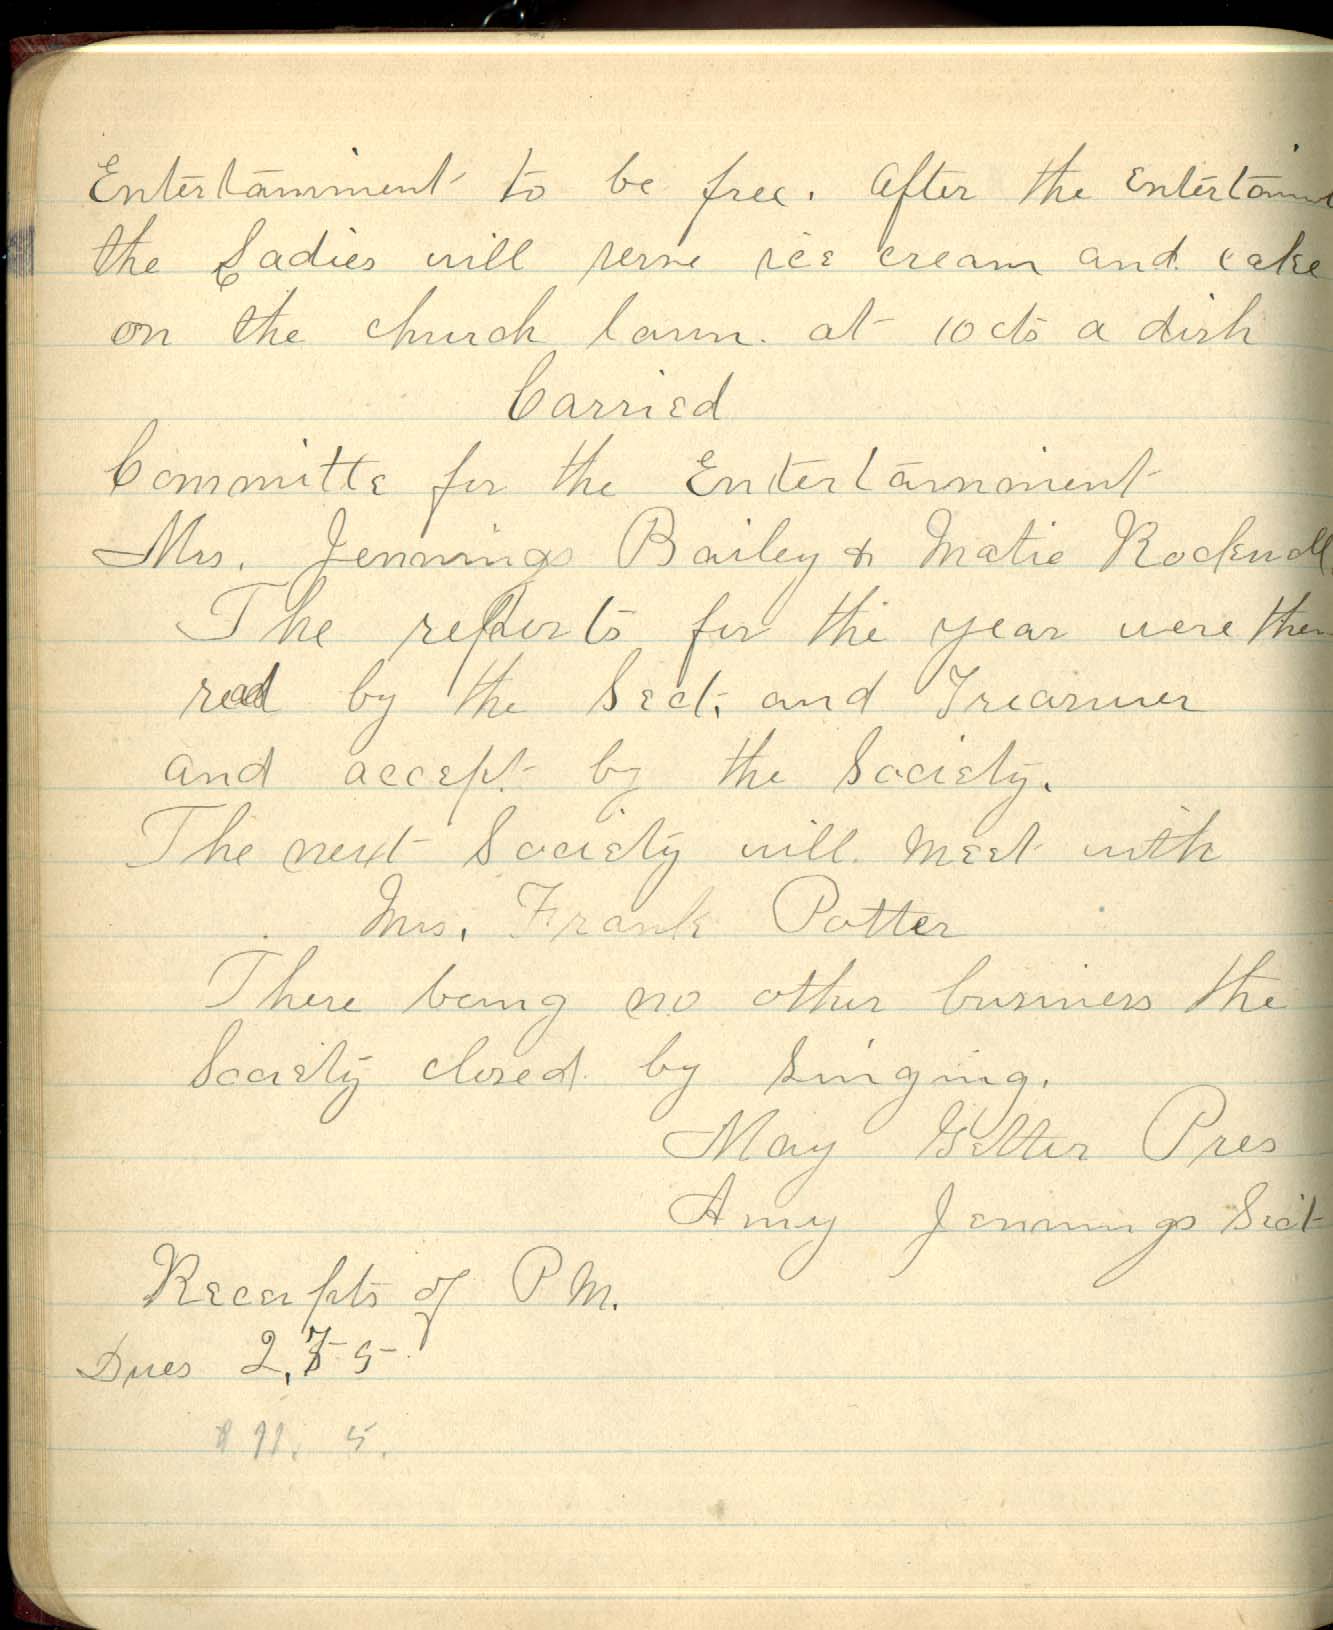 Entertainment to be free. After the Entertainm
the Ladies will serve ice cream and cake
on the church lawn. at 10 cts a dish
Carried
Committe for the Entertainment
Mrs. Jennings Bailey & Matie Rockwell
The reports for the year were then
read by the Sect. and Treasurer
and accept by the Society.
The next Society will meet with
Mrs. Frank Potter
There being no other business the
Society closed by singing.
May Getter Pres
Amy Jennings Sect
Receipts of P M.
Dues 2,75